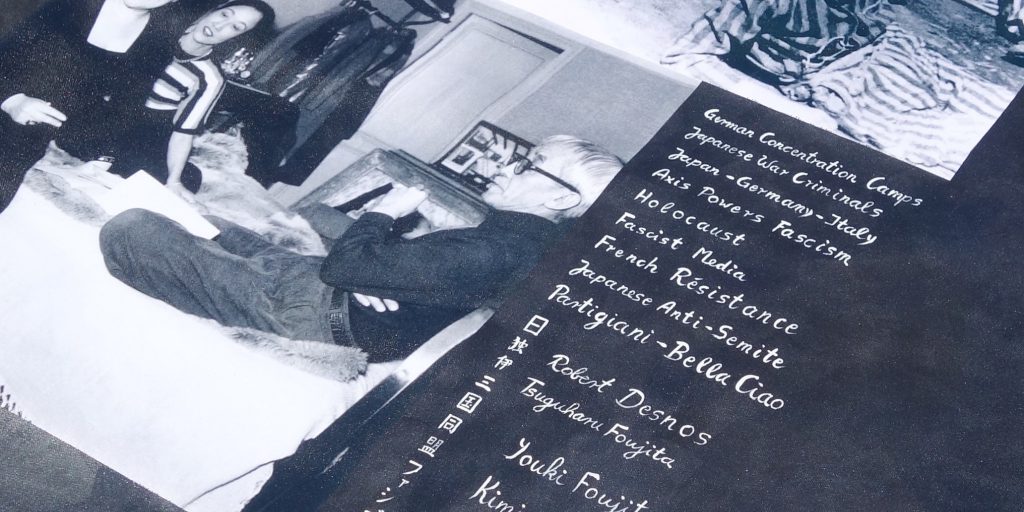 German Concentration Camps
Japanese War Criminals
Japan-Germany-Italy
Axis Powers Fascism
Holocaust
Fascist Media
French Résistance
Japanese Anti-Semite
Partigiani-Bella Ciao
日独伊三国同盟ファシ
Robert Desnos
Tsuguharu Foujita
Youki Foujit
Kimi